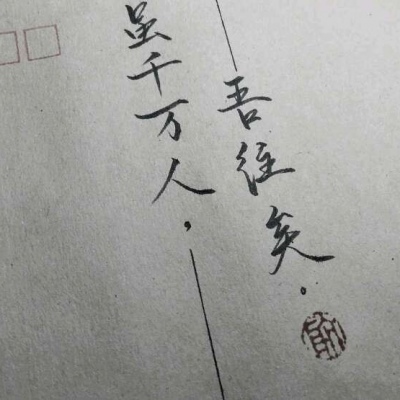 虽千万人，
吾往矣。